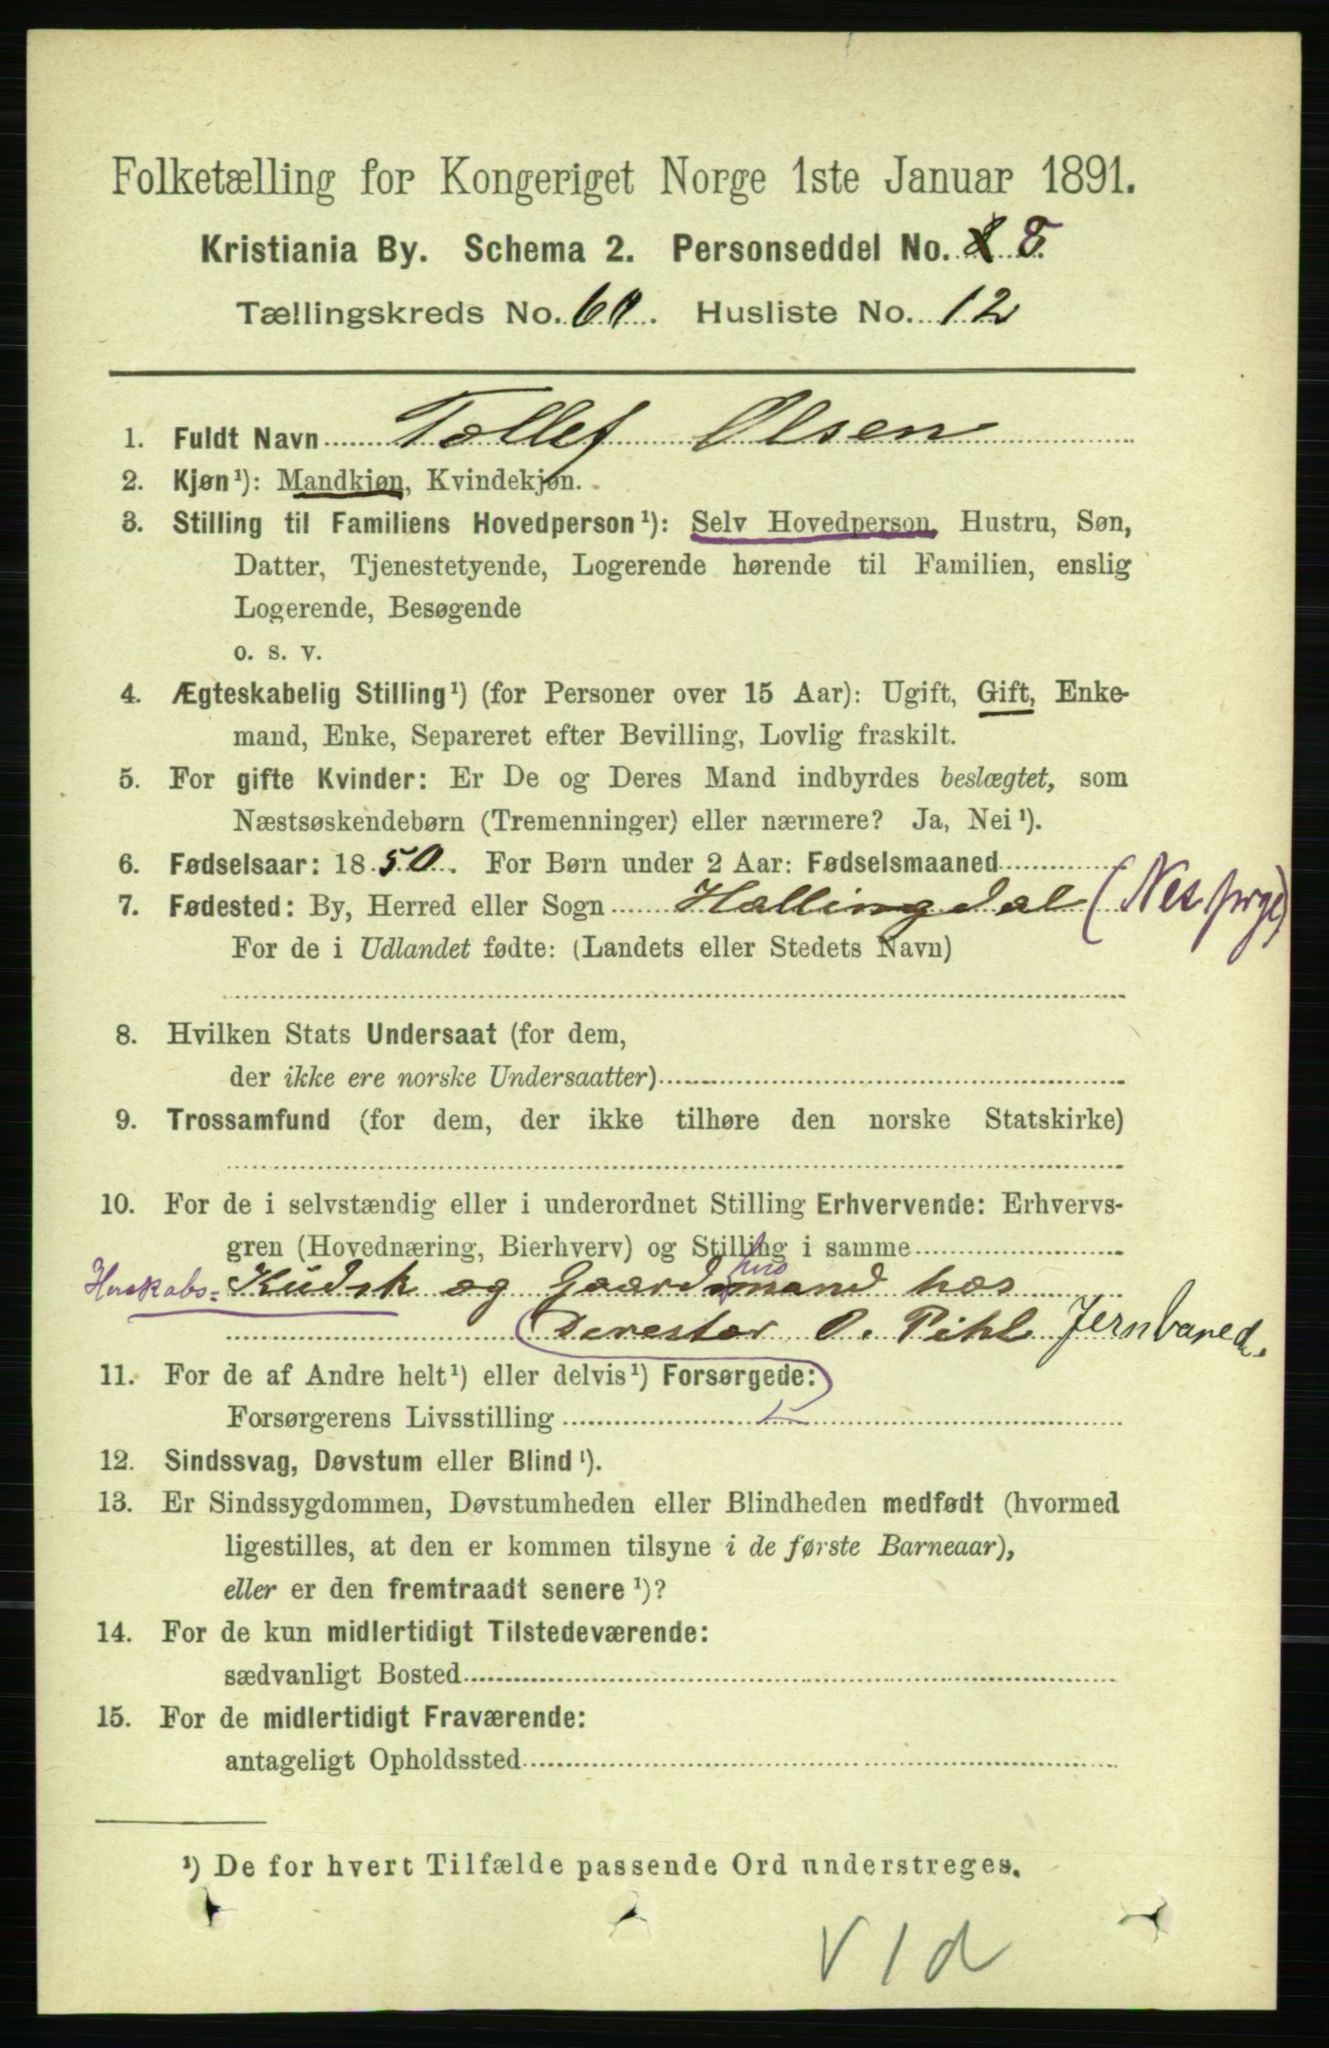 Folketælling for Kongeriget Norge 1ste Januar 1891.
Kristiania By. Schema 2. Personseddel No. 8.
Tællingskreds No. 60. Husliste No. 12
1. Fuldt Navn Tollef Olsen
2. Kjøn¹): Mandkjøn, Kvindekjøn.
3. Stilling til Familiens Hovedperson¹): Selv Hovedperson, Hustru, Søn,
Datter, Tjenestetyende, Logerende hørende til Familien, enslig
Logerende, Besøgende
o. s. v.
4. Ægteskabelig Stilling¹) (for Personer over 15 Aar): Ugift, Gift, Enke-
mand, Enke, Separeret efter Bevilling, Lovlig fraskilt.
5. For gifte Kvinder: Er De og Deres Mand indbyrdes beslægtet, som
Næstsøskendebørn (Tremenninger) eller nærmere? Ja, Nei¹).
6. Fødselsaar: 1850. For Børn under 2 Aar: Fødselsmaaned
7. Fødested: By, Herred eller Sogn Hallingdal (Nes prgj)
For de i Udlandet fødte: (Landets eller Stedets Navn)
8. Hvilken Stats Undersaat (for dem,
der ikke ere norske Undersaatter)
9. Trossamfund (for dem, der ikke tilhøre den norske Statskirke)
10. For de i selvstændig eller i underordnet Stilling Erhvervende: Erhvervs-
gren (Hovednæring, Bierhverv) og Stilling i samme
Herskabs- Kudsk og Gaardmand hos
Directør O. Pihl Jernbaned.
11. For de af Andre helt¹) eller delvis¹) Forsørgede:
Forsørgerens Livsstilling
12. Sindssvag, Døvstum eller Blind¹).
13. Er Sindssygdommen, Døvstumheden eller Blindheden medfødt (hvormed
ligestilles, at den er kommen tilsyne i de første Barneaar),
eller er den fremtraadt senere¹)?
14. For de kun midlertidigt Tilstedeværende:
sædvanligt Bosted
15. For de midlertidigt Fraværende:
antageligt Opholdssted
¹) De for hvert Tilfælde passende Ord understreges.
V 1 d